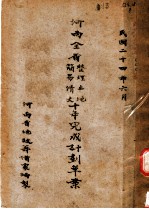 民國二十四年六月
河南全省整理土地
簡易清丈十年完成計劃草案
河南省地政籌備處編製